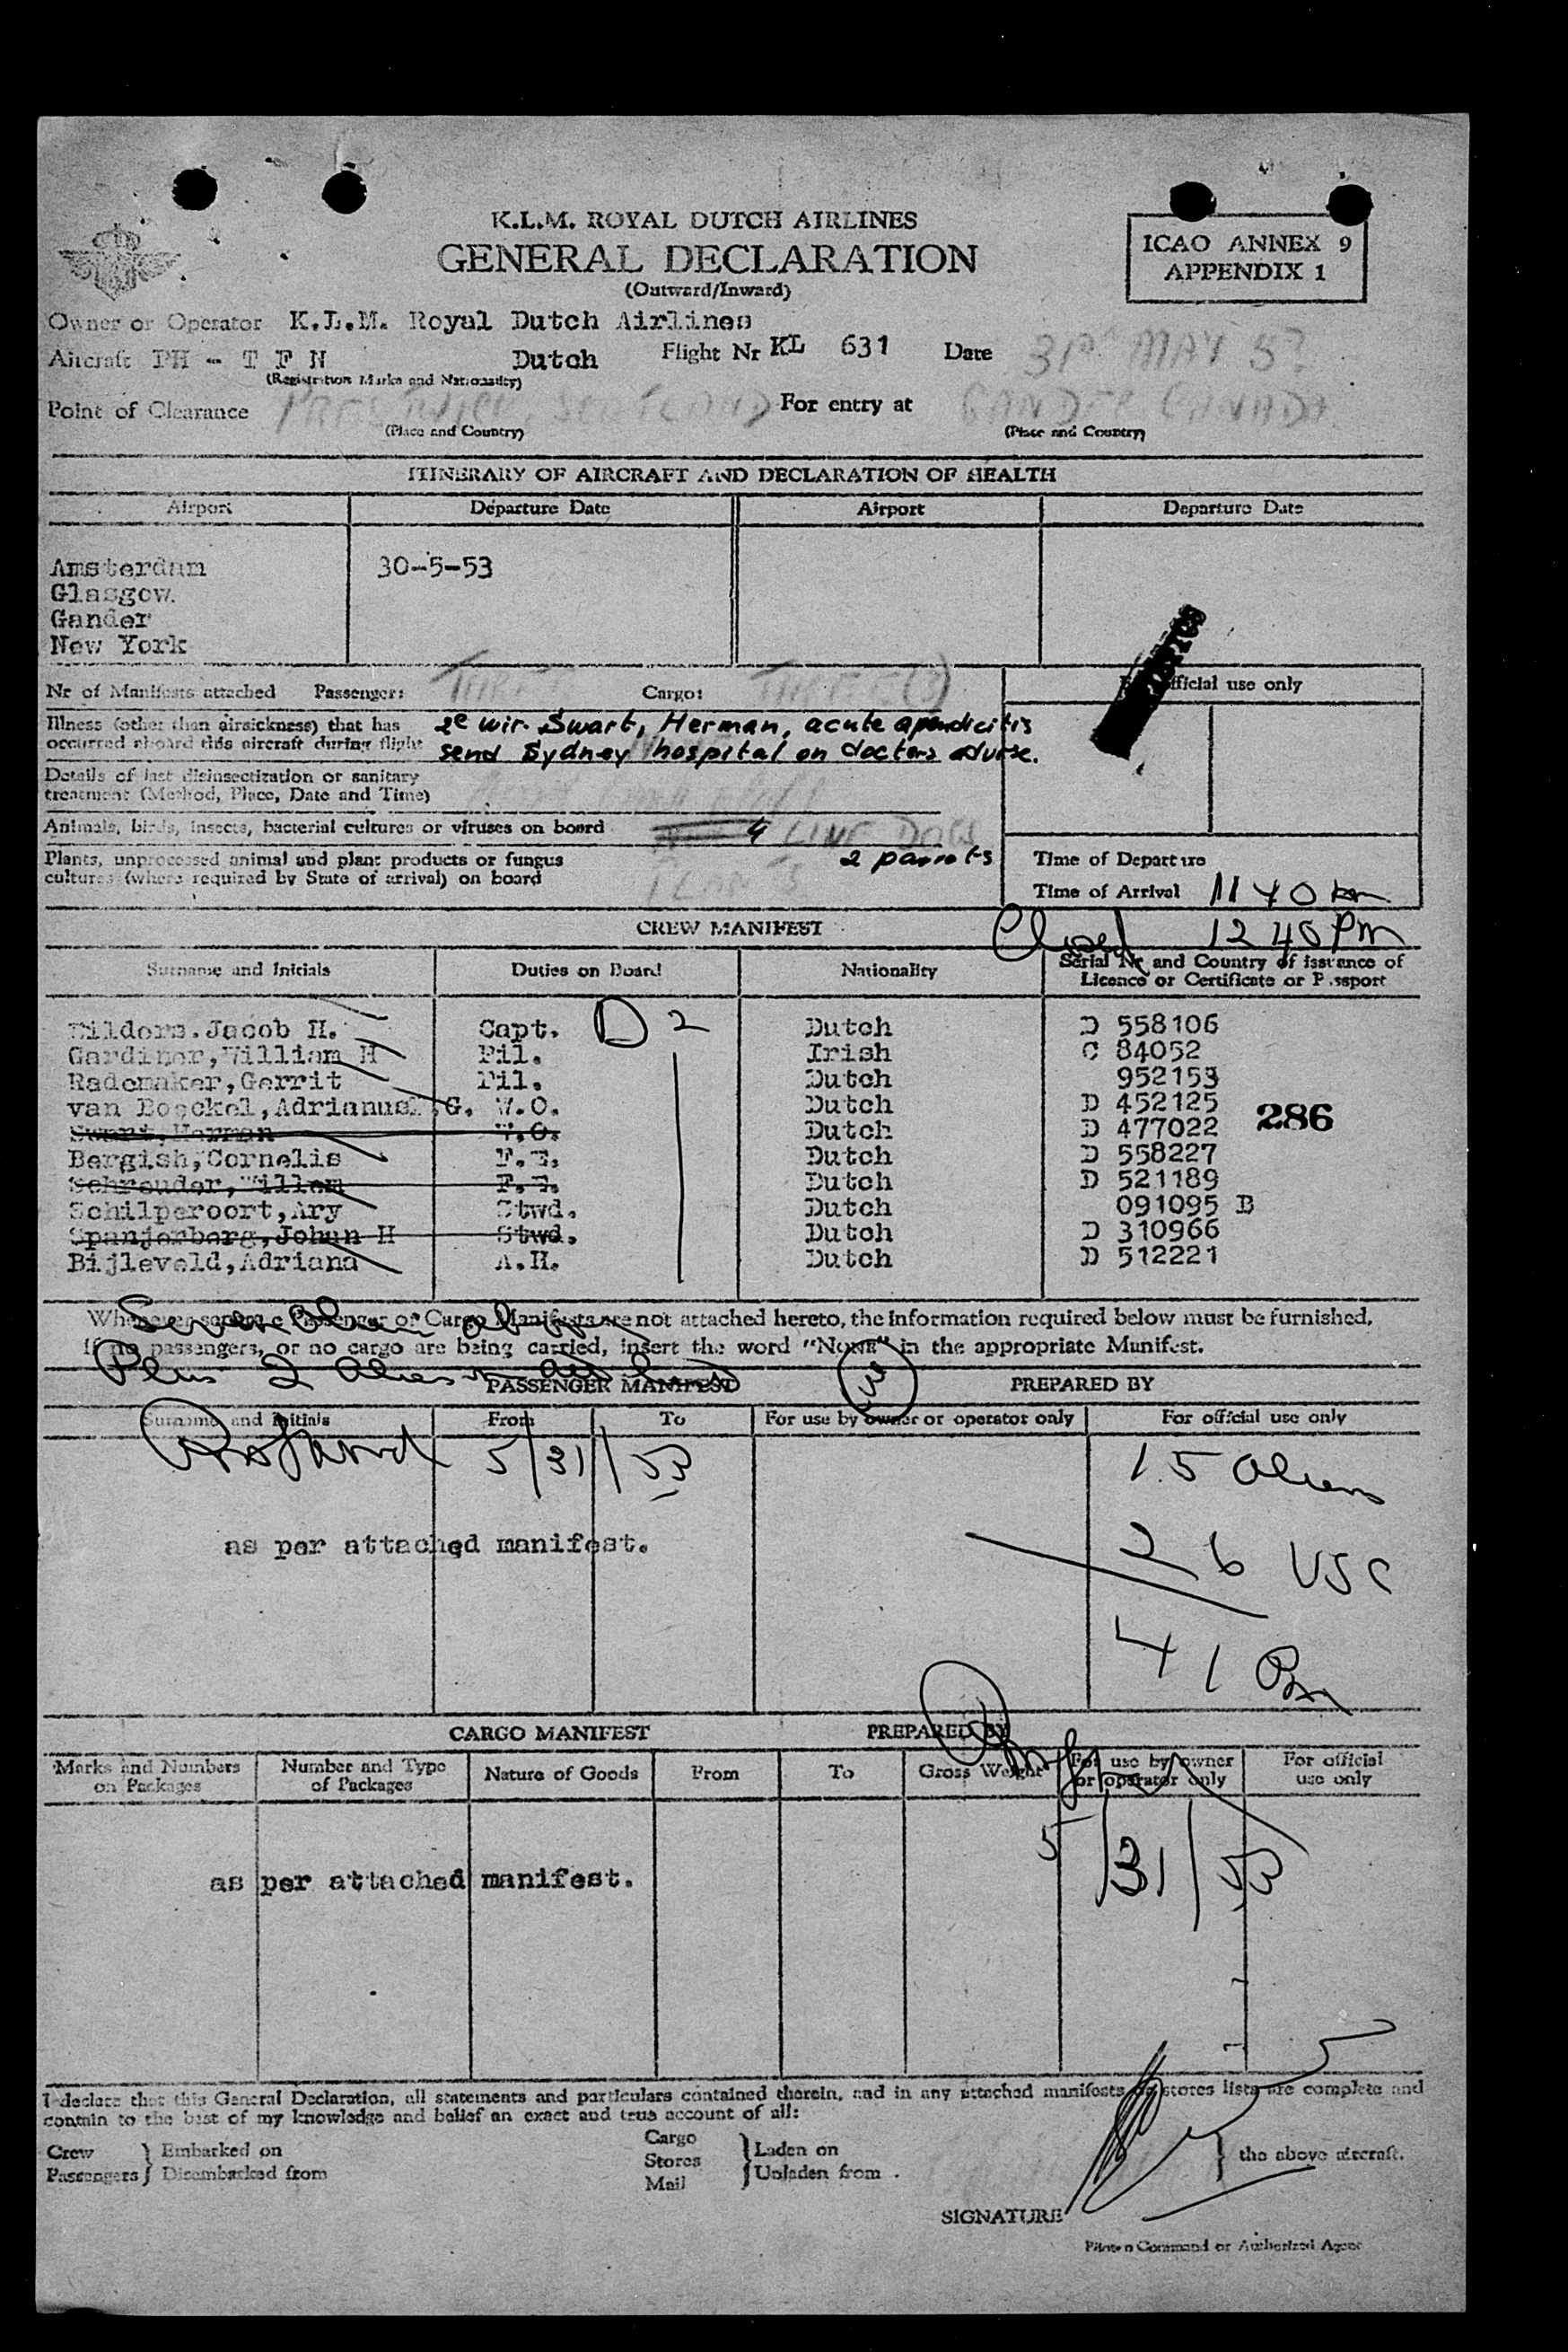 K.L.M. ROYAL DUTCH AIRLINES
GENERAL DECLARATION
(Outward/Inward)
ICAO ANNEX 9
APPENDIX 1
Owner or Operator K.L.M. Royal Dutch Airlines
Aircraft PH - T F N Dutch Flight Nr KL 631 Date 31 MAY 53
(Registration Marks and Nationality)
Point of Clearance PRESTWICK SCOTLAND For entry at GANDER CANADA
(Place and Country) (Place and Country)
ITINERARY OF AIRCRAFT AND DECLARATION OF HEALTH
Airport Departure Date Airport Departure Date
Amsterdam 30-5-53
Glasgow.
Gander
New York
Nr of Manifests attached Passenger: THREE Cargo: THREE (3)
For official use only
Illness (other than airsickness) that has 2e wir. Swart, Herman, acute apendicitis
occurred aboard this aircraft during flight send Sydney hospital on doctors advise.
Details of last disinsectization or sanitary
treatment (Method, Place, Date and Time)
Animals, birds, insects, bacterial cultures or viruses on board 4 LIVE DOGS
Plants, unprocessed animal and plant products or fungus 2 parrots
cultures (where required by State of arrival) on board
Time of Departure
Time of Arrival 1140
Closed 12 40 PM
CREW MANIFEST
Surname and Initials Duties on Board Nationality Serial Nr and Country of issuance of
Licence or Certificate or Passport
Jacob H. Capt. D 2 Dutch D 558106
Gardiner,William H Pil. Irish C 84052
Rademaker,Gerrit Pil. Dutch 952153
van Boeckel,Adrianus G. W.O. Dutch D 452125
Swart,Herman W.O. Dutch D 477022
286
Bergish,Cornelis F.E. Dutch D 558227
Schreuder,Willem F.E. Dutch D 521189
Schilperoort,Ary Stwd. Dutch 091095 B
Spanjerberg,Johan H Stwd. Dutch D 310966
Bijleveld,Adriana A.H. Dutch D 512221
Whenever separate Passenger or Cargo Manifests are not attached hereto, the information required below must be furnished.
If no passengers, or no cargo are being carried, insert the word "NONE" in the appropriate Manifest.
Plus 2
PASSENGER MANIFEST PREPARED BY
Surname and Initials From To For use by owner or operator only For official use only
5/31/53
15 Aliens
as per attached manifest.
26 USC
41
CARGO MANIFEST PREPARED BY
Marks and Numbers on Packages Number and Type of Packages Nature of Goods From To Gross Weight For use by owner or operator only For official use only
5/31/53
as per attached manifest.
I declare that this General Declaration, all statements and particulars contained therein, and in any attached manifests or stores lists are complete and
contain to the best of my knowledge and belief an exact and true account of all:
Crew Embarked on Cargo Laden on
Passengers Disembarked from Stores Unladen from the above aircraft.
Mail
SIGNATURE
Pilot in Command or Authorized Agent